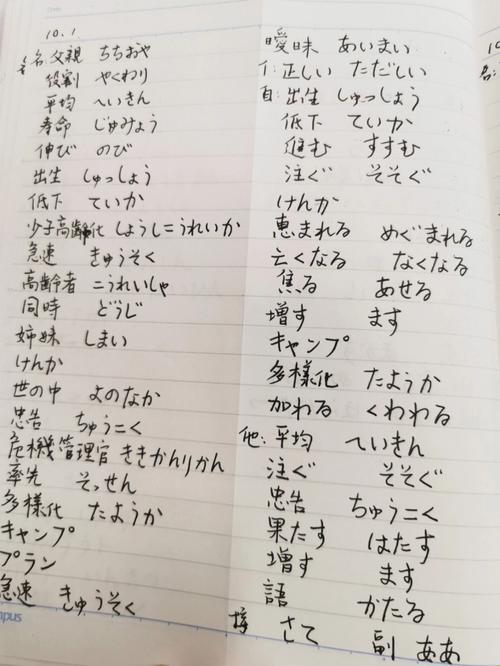 10.1
名:父親 ちちおや
役割 やくわり
平均 へいきん
寿命 じゅみょう
伸び のび
出生 しゅっしょう
低下 ていか
少子高齢化 しょうしこうれいか
急速 きゅうそく
高齢者 こうれいしゃ
同時 どうじ
姉妹 しまい
けんか
世の中 よのなか
忠告 ちゅうこく
危機管理官 ききかんりかん
率先 そっせん
多様化 たようか
キャンプ
プラン
急速 きゅうそく
pus
曖昧 あいまい
イ:正しい ただしい
自:出生 しゅっしょう
低下 ていか
進む すすむ
注ぐ そそぐ
けんか
恵まれる めぐまれる
亡くなる なくなる
焦る あせる
増す ます
キャンプ
多様化 たようか
加わる くわわる
他:平均 へいきん
注ぐ そそぐ
忠告 ちゅうこく
果たす はたす
増す ます
語 かたる
接 さて 副 ああ